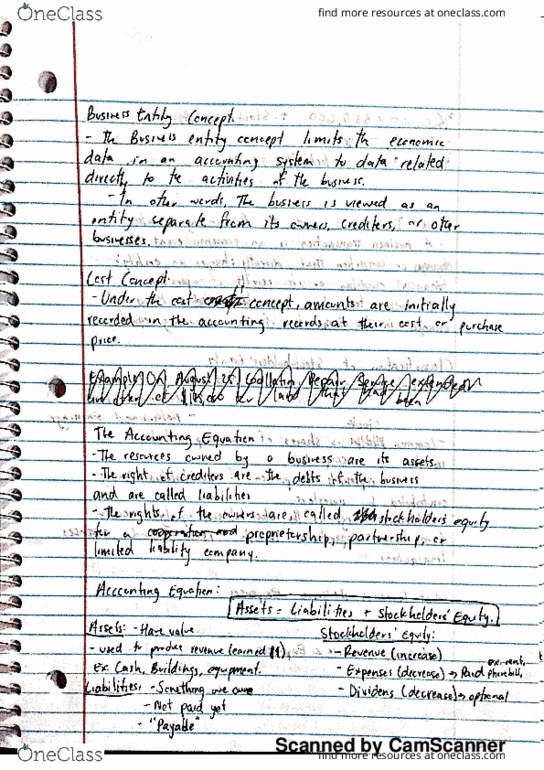 OneClass
find more resources at oneclass.com
Business Entity Concept.
- The Business entity concept limits th economic
data in an accounting system to data related
directly to te activities of the business.
- In other words, The business is viewed as an
entity separate from its owners, crediters, or other
businesses.
Cost Concept:
- Under the cost concept, amounts are initially
recorded in the accounting records at their cost or purchase
price.
Example: On August 25, Repair Service extended an
The Accounting Equation
- The resources owned by a business are its assets.
- The right of crediters are the debts of the business
and are called liabilities
- The rights of the owners are called stockholders equity
for a proprietership, partnership, or
limited liability company.
Accounting Equation:
Assets = Liabilities + Stockholders' Equity.
Assets: - Have value
- used to produce revenue (earned
Ex: Cash, Buildings, equpment.
Liabilities: - Something we owe
- Not paid yet
- "Payable"
Stockholders' Equity:
- Revenue (increase)
- Expenses (decrease) → Paid phone bill, ex. rent,
- Dividens (decrease) → optional
Scanned by CamScanner
OneClass
find more resources at oneclass.com